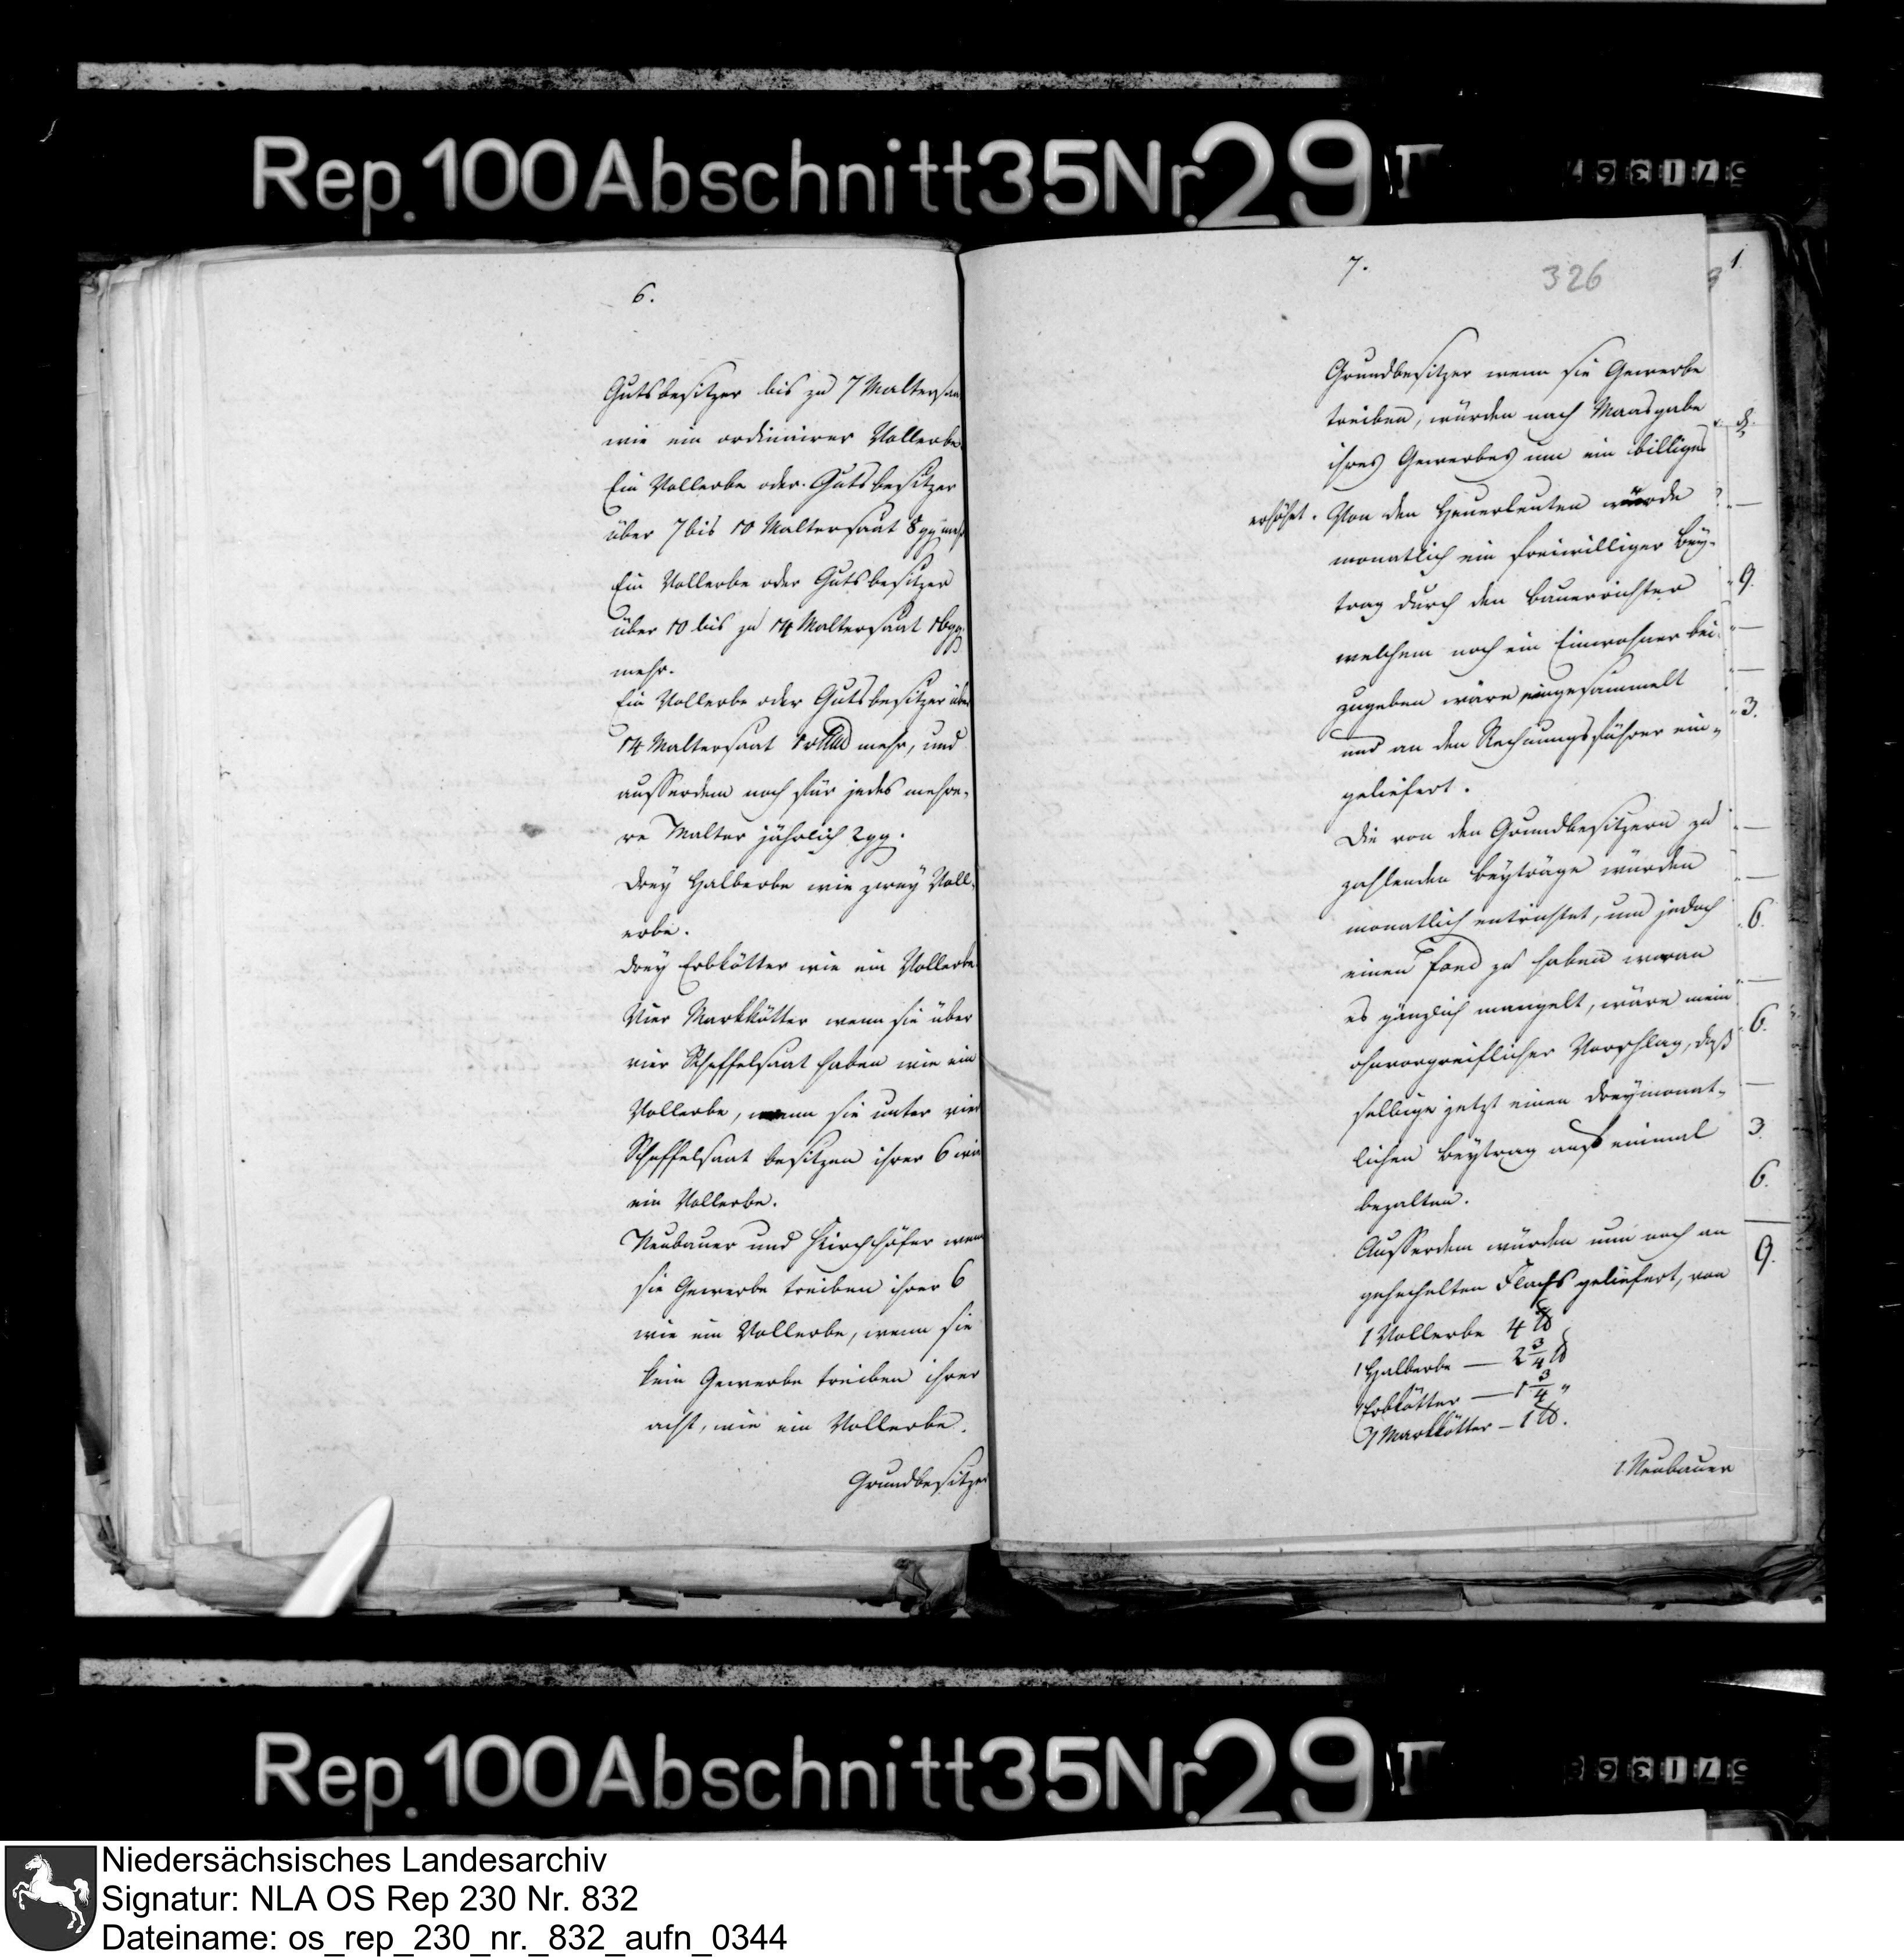 Rep. 100 Abschnitt 35 Nr. 29 II
571367
6.
Gutsbesitzer bis zu 7 Maltersaa
wie ein ordinairer Vollerbe
Ein Vollerbe oder Gutsbesitzer
über 7 bis 10 Maltersaat 8 gg mehr
Ein Vollerbe oder Gutsbesitzer
über 10 bis zu 14 Maltersaat 16 gg.
mehr.
Ein Vollerbe oder Gutsbesitzer über
14 Maltersaat mehr, und
ausserdem noch für jedes mehre,
re Malter jährlich 2 gg.
Drey Halberbe wie zwey Voll,
erbe.
Drey Erbkötter wie ein Vollerbe
Vier Markkötter wenn sie über
vier Scheffelsaat haben wie ein
Vollerbe, wenn sie unter vier
Scheffelsaat besitzen ihrer 6 wie
ein Vollerbe.
Neubauer und Kirchhöfer wenn
sie Gewerbe treiben ihrer 6
wie ein Vollerbe, wenn sie
kein Gewerbe treiben ihrer
acht, wie ein Vollerbe.
Grundbesitzer
7.
326
Grundbesitzer wenn sie Gewerbe
treiben, würden nach Maasgabe
ihres Gewerbes um ein billiges
erhöhet. Von den Heuerleuten würde
monatlich ein freiwilliger Bey-
trag durch den Bauerrichter
welchem noch ein Einwohner bei
zugeben wäre eingesammelt
und an den Rechnungsführer ein,
geliefert.
Die von den Grundbesitzern zu
zahlenden Beyträge würden
monatlich entrichtet, um jedoch
einen Fond zu haben woran
es gänzlich mangelt, wäre mein
ohnvorgreiflicher Vorschlag, daß
selbige jetzt einen dreymonat,
lichen Beytrag auf einmal
bezalten.
Ausserdem würden nun noch an
gehechelten Flachs geliefert, von
1 Vollerbe 4 ℔
1 Halberbe — 2 3/4 ℔
1 Erbkötter — 1 3/4 "
1 Markkötter — 1 ℔.
1 Neubauer
1
9.
3.
6.
6.
3.
6.
9.
Rep. 100 Abschnitt 35 Nr. 29 II
Niedersächsisches Landesarchiv
Signatur: NLA OS Rep 230 Nr. 832
Dateiname: os_rep_230_nr._832_aufn_0344